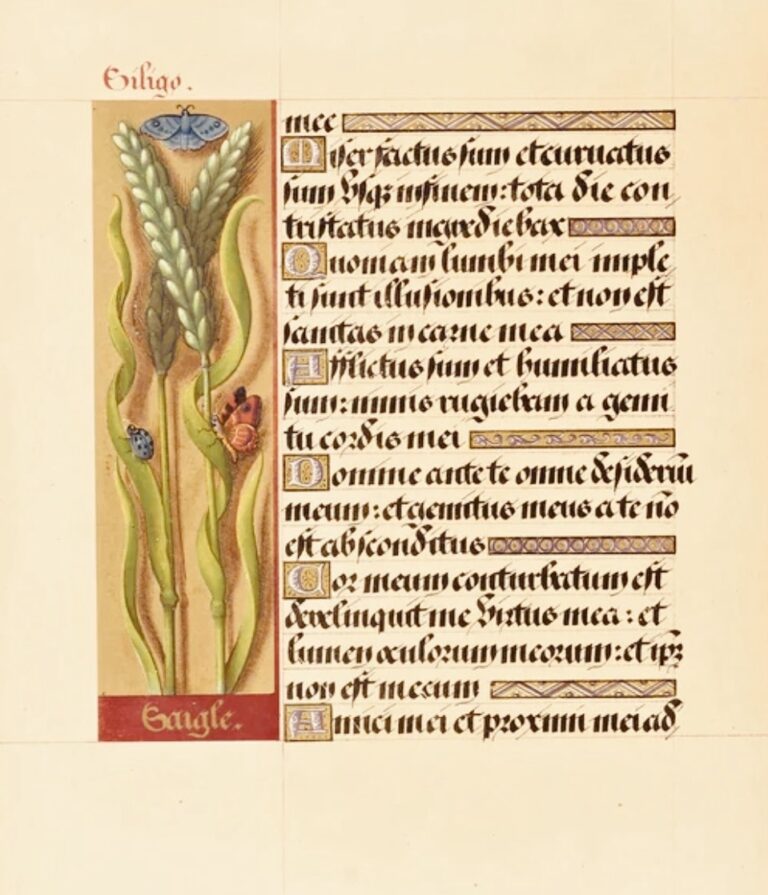 Siligo.
mee
Miser factus sum et curuatus
sum vsqz in finem: tota die con
tristatus ingrediebar
Quoniam lumbi mei imple
ti sunt illusionibus: et non est
sanitas in carne mea
Afflictus sum et humiliatus
sum: nimis rugiebam a gemi
tu cordis mei
Domine ante te omne desideriũ
meum: et gemitus meus a te nõ
est absconditus
Cor meum conturbatum est
dereliquit me virtus mea: et
lumen oculorum meorum: et ip̃z
non est mecum
Amici mei et proximi mei ad
Saigle.